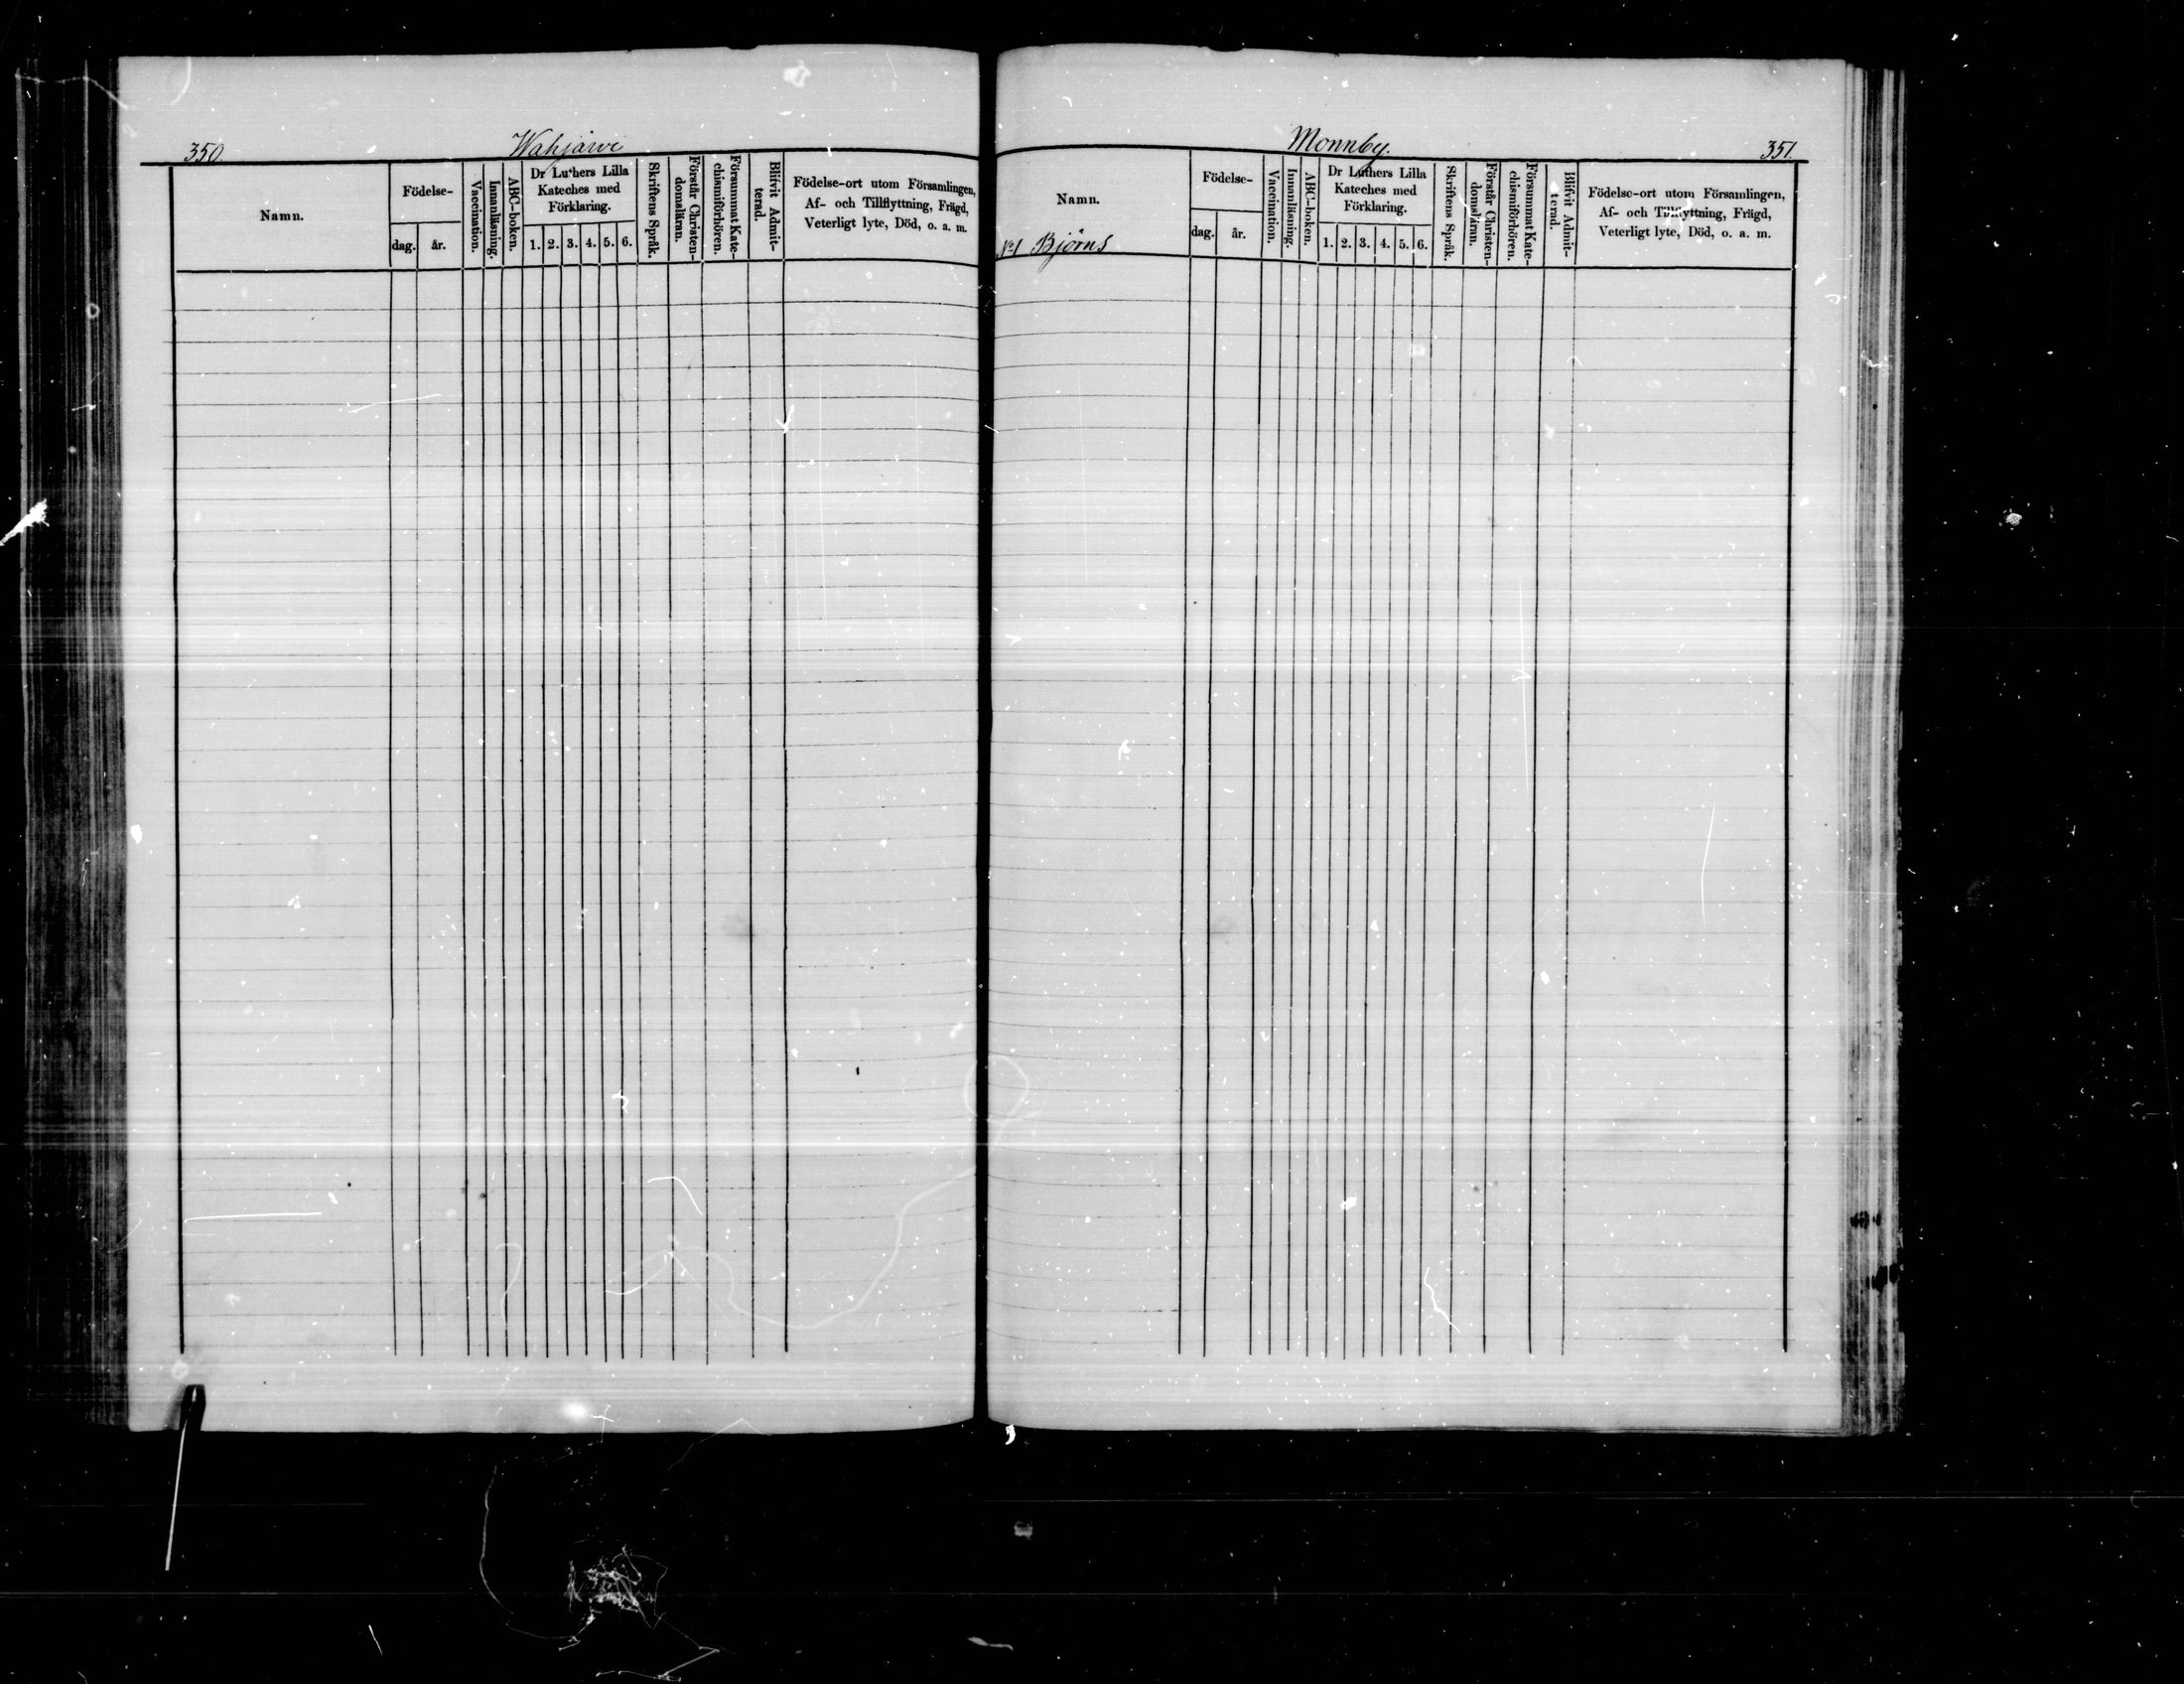 350.
Wahjärvi
Namn.
Födelse-
dag.
år.
Vaccination.
Innanläsning.
ABC-boken.
Dr Luthers Lilla
Kateches med
Förklaring.
1. 2. 3. 4. 5. 6.
Skriftens Språk.
Förstår Christen-
domsläran.
Försummat Kate-
chismiförhören.
Blifvit Admit-
terad.
Födelse-ort utom Församlingen,
Af- och Tillflyttning, Frägd,
Veterligt lyte, Död, o. a. m.
Monnby.
351.
Namn.
No 1 Björns
Födelse-
dag.
år.
Vaccination.
Innanläsning.
ABC-boken.
Dr Luthers Lilla
Kateches med
Förklaring.
1. 2. 3. 4. 5. 6.
Skriftens Språk.
Förstår Christen-
domsläran.
Försummat Kate-
chismiförhören.
Blifvit Admit-
terad.
Födelse-ort utom Församlingen,
Af- och Tillflyttning, Frägd,
Veterligt lyte, Död, o. a. m.